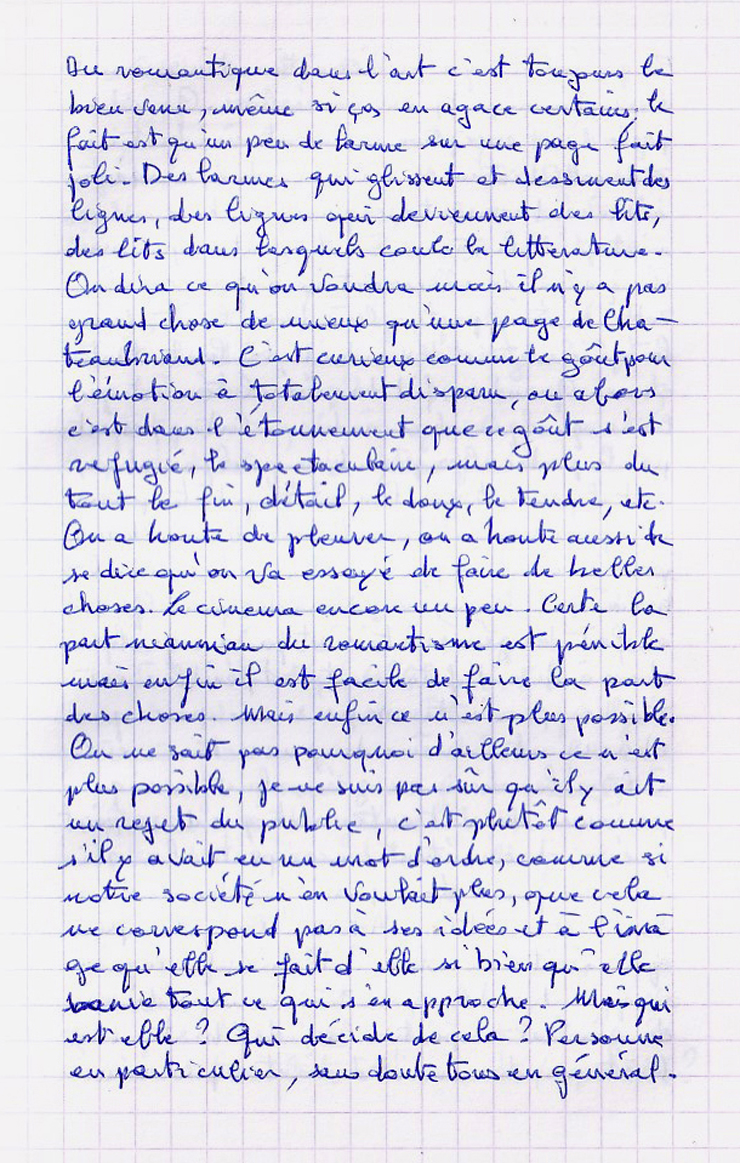 Du romantique dans l'art c'est toujours le
bien venu, même si ças en agace certains; le
fait est qu'un peu de larme sur une page fait
joli. Des larmes qui glissent et dessinent des
lignes, des lignes qui deviennent des lits,
des lits dans lesquels coule la littérature.
On dira ce qu'on voudra mais il n'y a pas
grand chose de mieux qu'une page de Cha-
teaubriand. C'est curieux comme le goût pour
l'émotion à totalement disparu, ou alors
c'est dans l'étonnement que ce goût s'est
refugié, le spectaculaire, mais plus du
tout le fin, détail, le doux, le tendre, etc.
On a honte de pleurer, on a honte aussi de
se dire qu'on va essayé de faire de belles
choses. Le cinema encore un peu. Certe la
part du romantisme est pénible
mais enfin il est facile de faire la part
des choses. Mais enfin ce n'est plus possible.
On ne sait pas pourquoi d'ailleurs ce n'est
plus possible, je ne suis pas sûr qu'il y ait
un rejet du public, c'est plutôt comme
s'il y avait eu un mot d'ordre, comme si
notre société n'en voulait plus, que cela
ne correspond pas à ses idées et à l'ima
ge qu'elle se fait d'elle si bien qu'elle
tout ce qui s'en approche. Mais qui
est elle ? Qui décide de cela ? Personne
en particulier, sans doute tous en général.